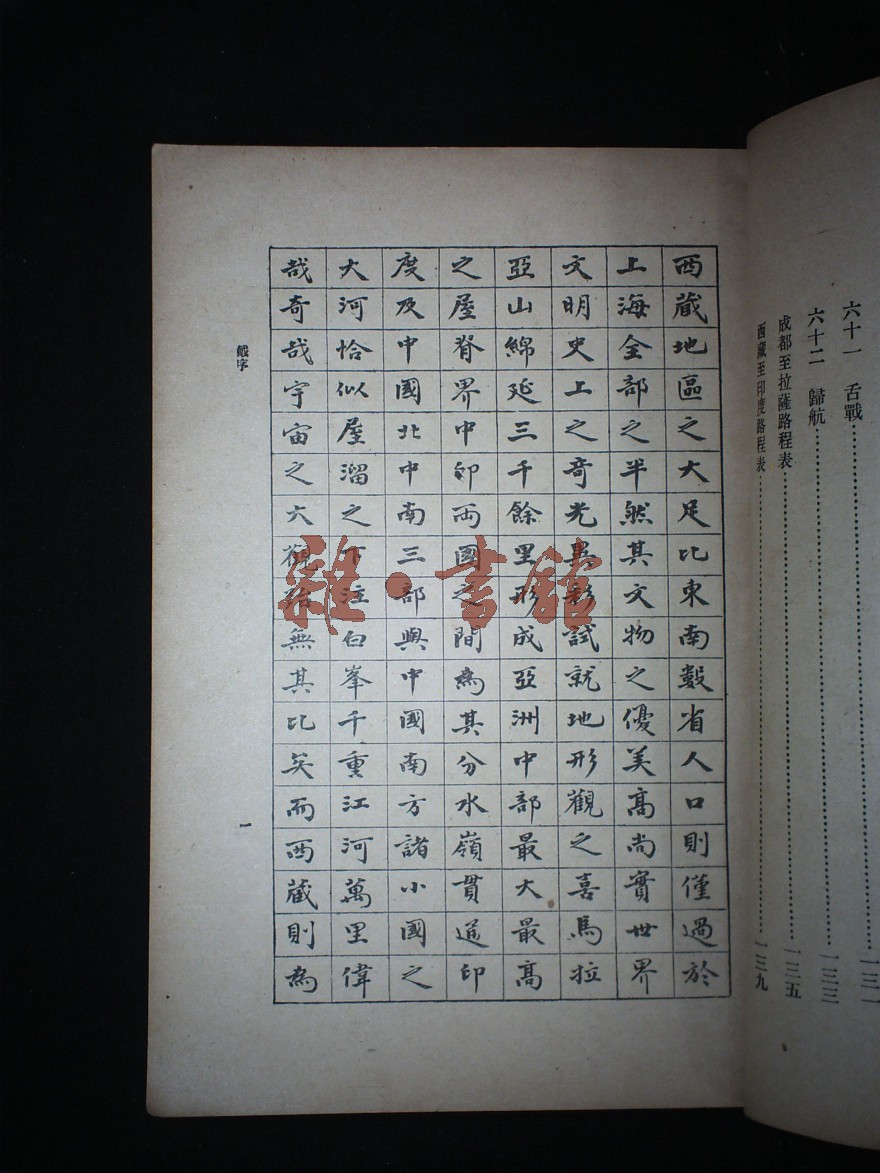 六十一 舌戰……一三一
六十二 歸航……一三三
成都至拉薩路程表……一三五
西藏至印度路程表……一三九
西藏地區之大足比東南數省人口則僅過於
上海全部之半然其文物之優美高尚實世界
文明史上之奇光異彩試就地形觀之喜馬拉
亞山綿延三千餘里形成亞洲中部最大最高
之屋脊界中印兩國之間為其分水嶺貫通印
度及中國北中南三部與中國南方諸小國之
大河恰似屋溜之下注白峯千重江河萬里偉
哉奇哉宇宙之大觀殆無其比矣而西藏則為
戴序
一
雜·書館